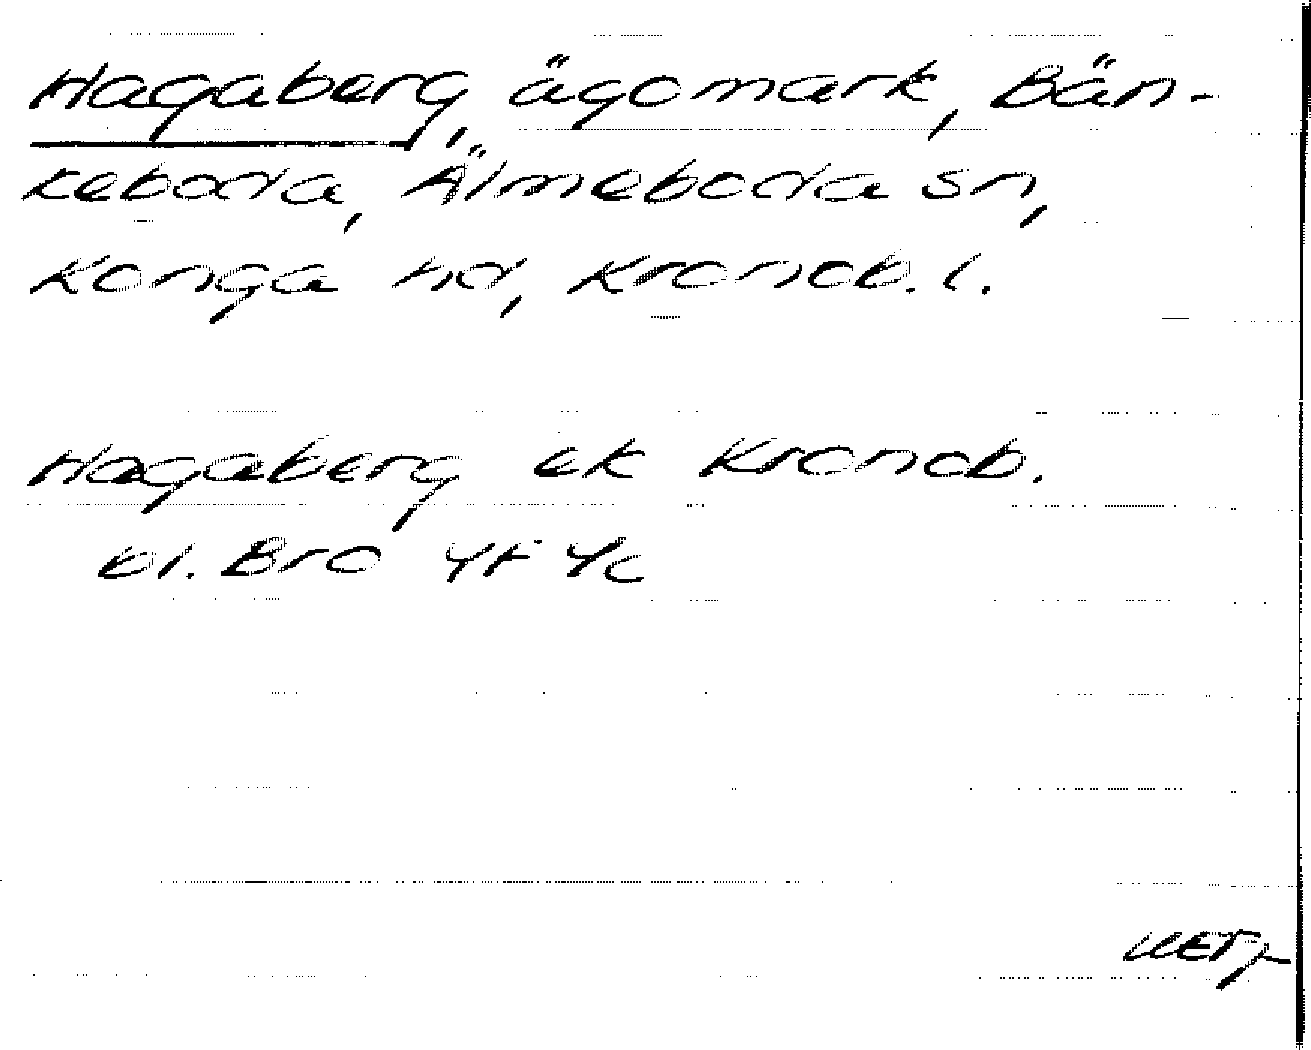 Hagaberg, ägomark, Bän-
keboda, Älmeboda sn,
Konga hd, Kronob. l.
Hagaberg ek Kronob.
bl. Bro 4F 4c